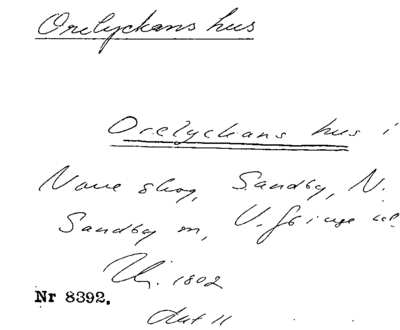 Orelyckans hus
Orelyckans hus i
Nove skog, Sandby, N.
Sandby sn, V. Göinge hd.
1802
Nr 8392.
11